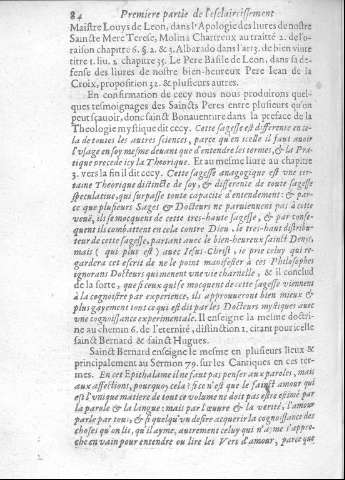 84 Premiere partie de l'esclaircissement
Maistre Louys de Leon, dans l'Apologie des liures de nostre
Saincte Mere Terese, Molina Chartreux au traitté 2. de l'o-
raison chapitre 6. §. 2. & 3. Albarado dans l'art de bien viure
titre 1. liu. 2. chapitre 35. Le Pere Basile de Leon, dans sa de-
fense des liures de nostre bien-heureux Pere Iean de la
Croix, proposition 32. & plusieurs autres.
En confirmation de cecy nous nous produirons quel-
ques tesmoignages des Saincts Peres entre plusieurs qu'on
peut sçauoir, donc sainct Bonauenture dans la preface de la
Theologie mystique dit cecy. Cette sagesse est differente en ce-
la de toutes les autres sciences, parce qu'en icelle il faut auoir
l'vsage en soy mesme deuant que d'entendre les termes, & la Pra-
tique precede icy la Theorique. Et au mesme liure au chapitre
3. vers la fin il dit cecy. Cette sagesse anagogique est vne cer-
taine Theorique distincte de soy, & differente de toute sagesse
speculatiue, qui surpasse toute capacité d'entendement: & par-
ce que plusieurs Sages & Docteurs ne paruiennent pas à cette
veuë, ils se mocquent de cette tres-haute sagesse, & par conse-
quent ils combattent en cela contre Dieu, le tres-haut distribu-
teur de cette sagesse, partant auec le bien-heureux sainct Denys,
mais ( qui plus est ) auec Iesus-Christ, ie prie celuy qui re-
gardera cet escrit de ne le point manifester à ces Philosophes
ignorans Docteurs qui menent vne vie charnelle, & il conclud
de la sorte, que si ceux qui se mocquent de cette sagesse viennent
à la cognoistre par experience, ils approuueront bien mieux &
plus gayement tout ce qui est dit par les Docteurs mystiques auec
vne cognoissance experimentale. Il enseigne la mesme doctri-
ne au chemin 6. de l'eternité, distinction 2. citant pour icelle
sainct Bernard & sainct Hugues.
Sainct Bernard enseigne le mesme en plusieurs lieux &
principalement au Sermon 79. sur les Cantiques en ces ter-
mes. En cet Epithalame il ne faut pas penser aux paroles, mais
aux affections, pourquoy cela: si ce n'est que le sainct amour qui
est l'vnique matiere de tout ce volume ne doit pas estre estimé par
la parole & la langue: mais par l'œuure & la verité, l'amour
parle par tout, & si quelqu'vn desire acquerir la cognoissance des
choses qu'on lit, qu'il ayme, autrement celuy qui n'ayme s'appro-
che en vain pour entendre ou lire les Vers d'amour, parce que